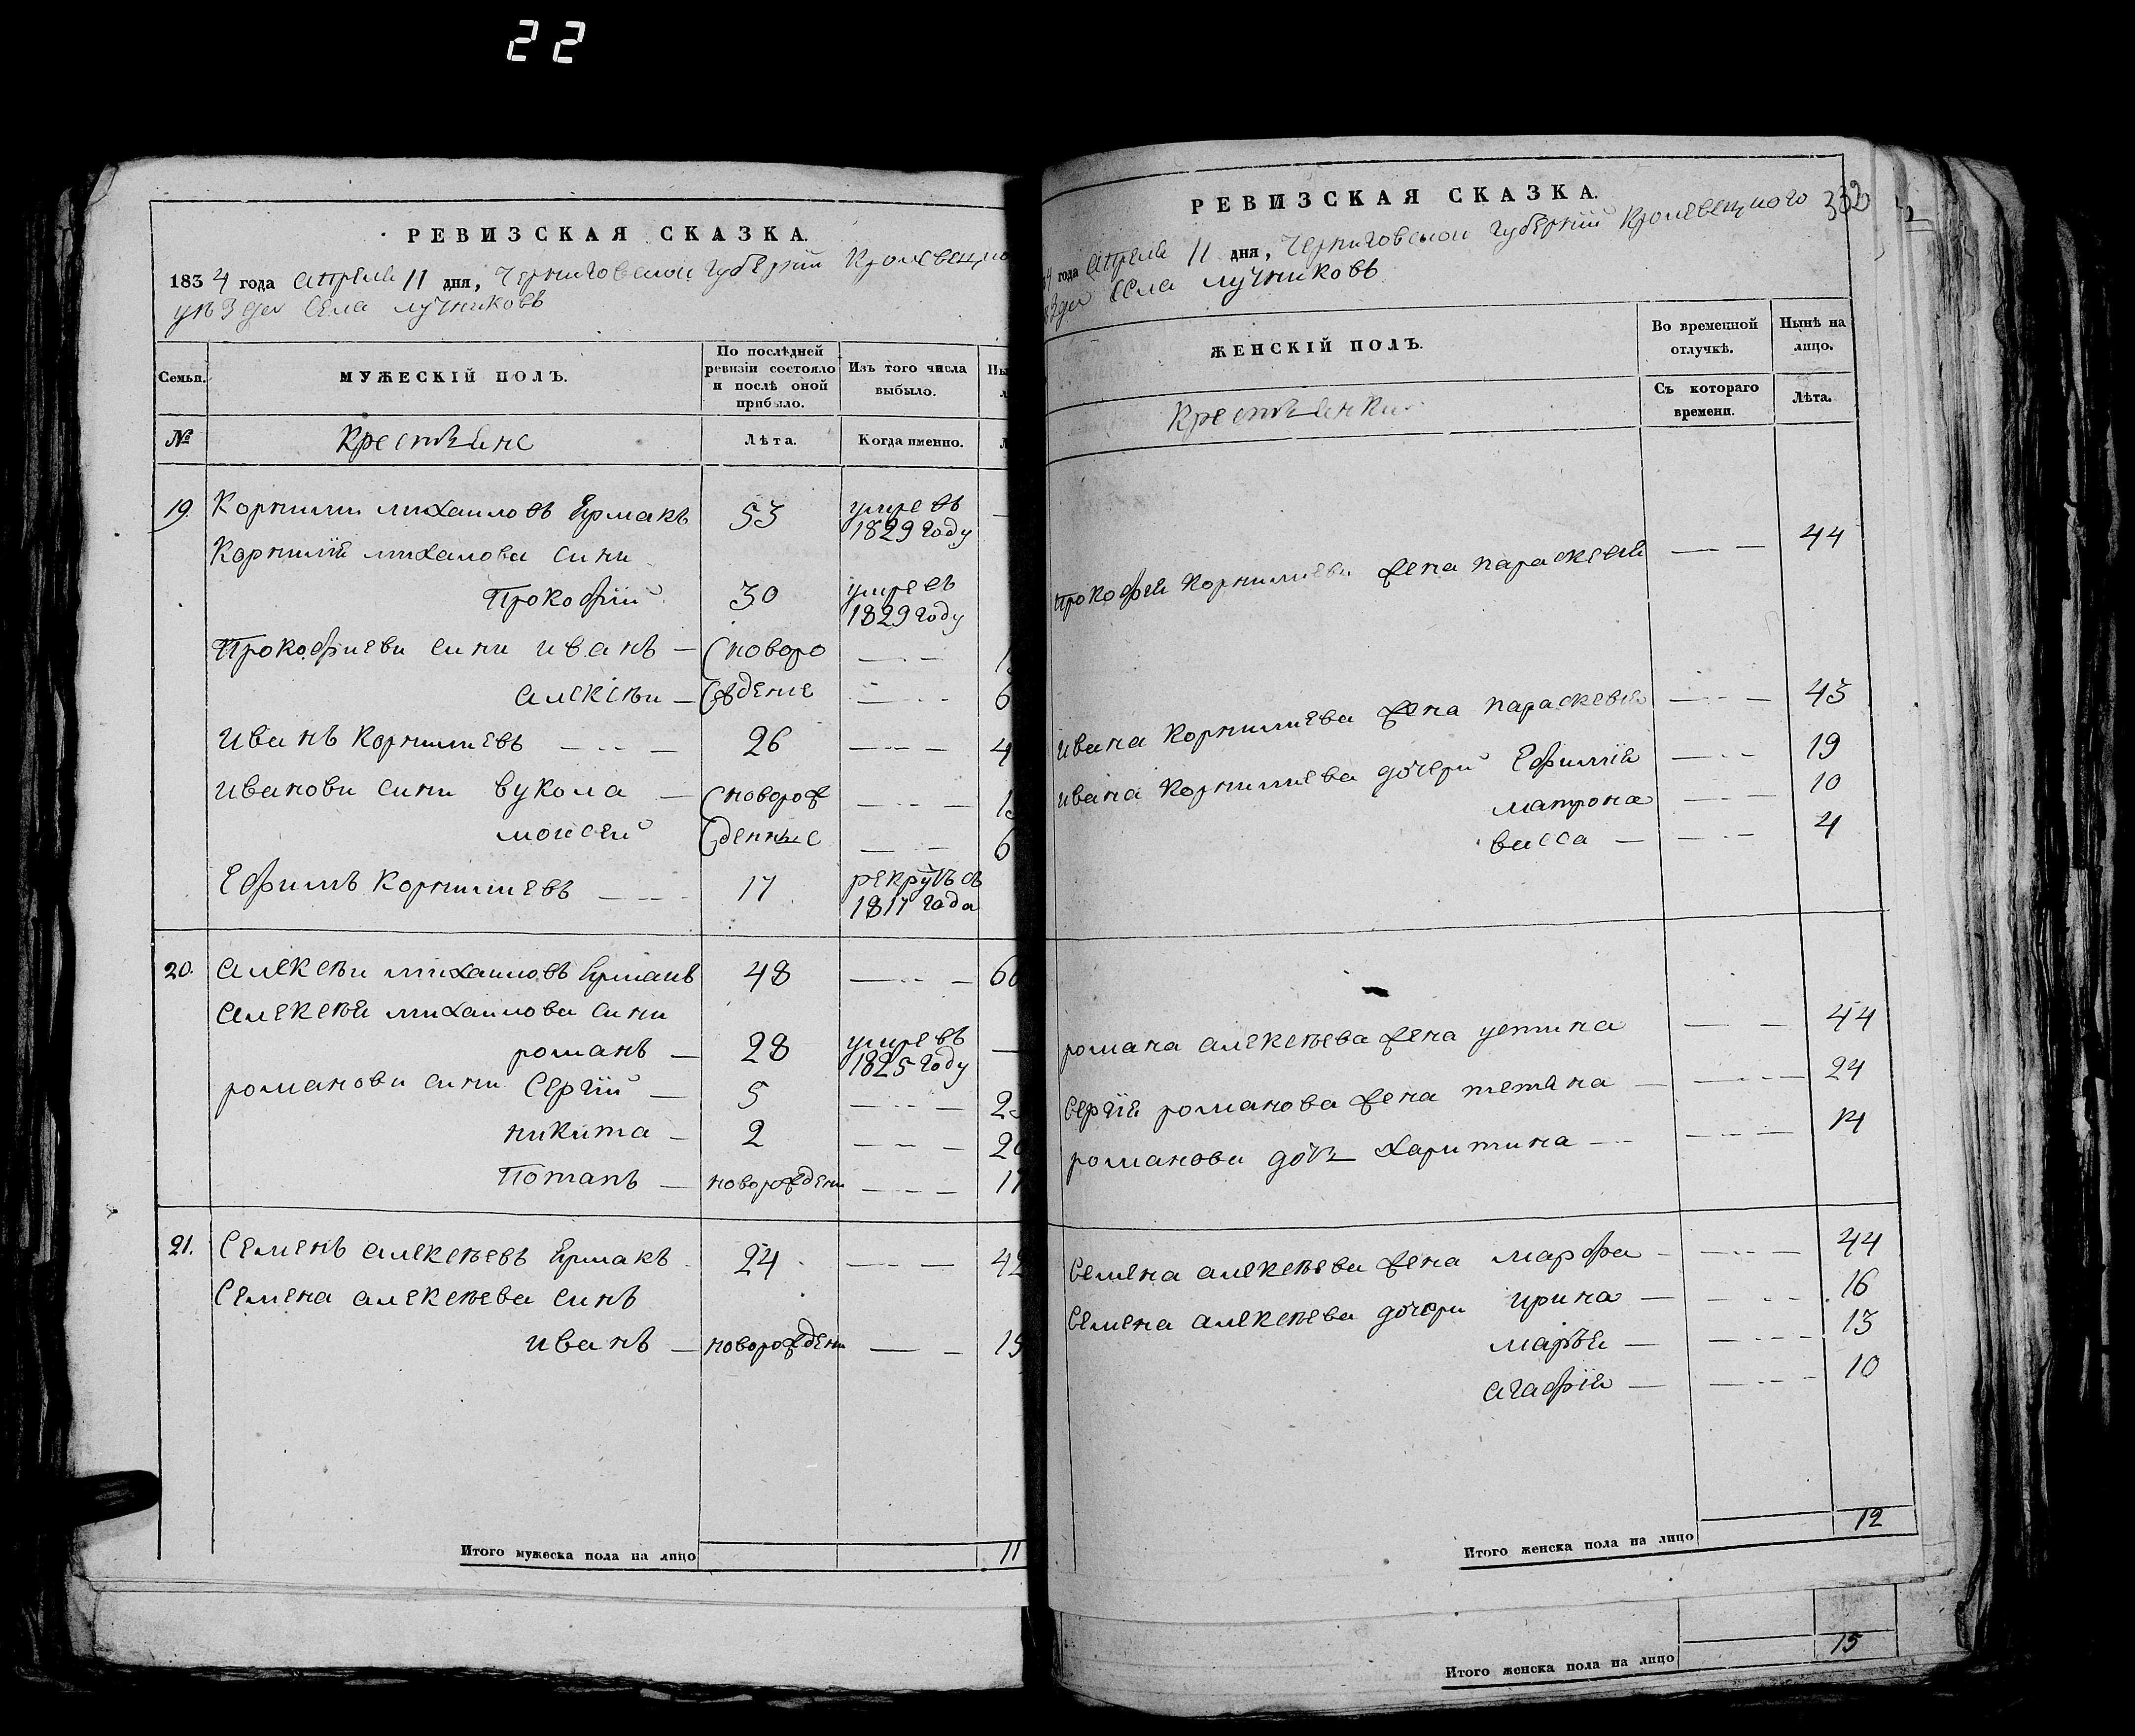 22
РЕВИЗСКАЯ СКАЗКА.
1834 года Апреля 11 дня, Черниговской губернии Кролевецко
уѣзда села лучниковъ
Семьи.
МУЖЕСКІЙ ПОЛЪ.
По послѣдней ревизіи состояло и послѣ оной прибыло.
Изъ того числа выбыло.
№
Крестьяне
Лѣта.
Когда именно.
19. Корнилій михаиловъ Ермакъ 53 умре въ 1829 году —
Корнилія михалова сини
Прокофій 30 умре въ 1829 году
Прокофиеви сини иванъ — новоро — — —
алексѣи — жденіе — — 6
иванъ Корнилиевъ — — 26 — — 4
иванови сини вукола — новорож — — — 1
моисей денные — — 6
Ефимъ Корнилиевъ — — 17 рекрутъ съ 1817 года
20. алексѣи михаиловъ Ермакъ 48 — — — 6
алексѣя михаилова сини
романъ — 28 умре въ 1825 году —
романови сини Сергій — 5 — — — 2
никита — 2 — — — 2
Потапъ — новорожден — — — 17
21. Семенъ алексѣевъ Ермакъ 24 — — — 42
Семена алексѣева синъ
иванъ — новорожден — — 15
Итого мужеска пола на лицо 11
РЕВИЗСКАЯ СКАЗКА. 332
4 года Апреля 11 дня, Черниговской губерніи Кролевецкого
ѣзда села лучниковъ
ЖЕНСКІЙ ПОЛЪ.
Во временной отлучкѣ.
Нынѣ на лицо.
Крестьянки
Съ котораго времени.
Лѣта.
Прокофія Корнилиева жена параскевія — — 44
ивана Корнилиева жена параскевія — — — 43
ивана Корнилиева дочери Ефимія — — 19
матрона — — 10
васса — — — 4
романа алексѣева жена устина — — 44
Сергія романова жена тетяна — — — 24
романови доч харитина — — — 14
Семена алексѣева жена марфа — — — 44
Семена алексѣева дочери ирина — — — 16
марья — — — 13
агафія — — — 10
Итого женска пола на лицо 12
Итого женска пола на лицо 15